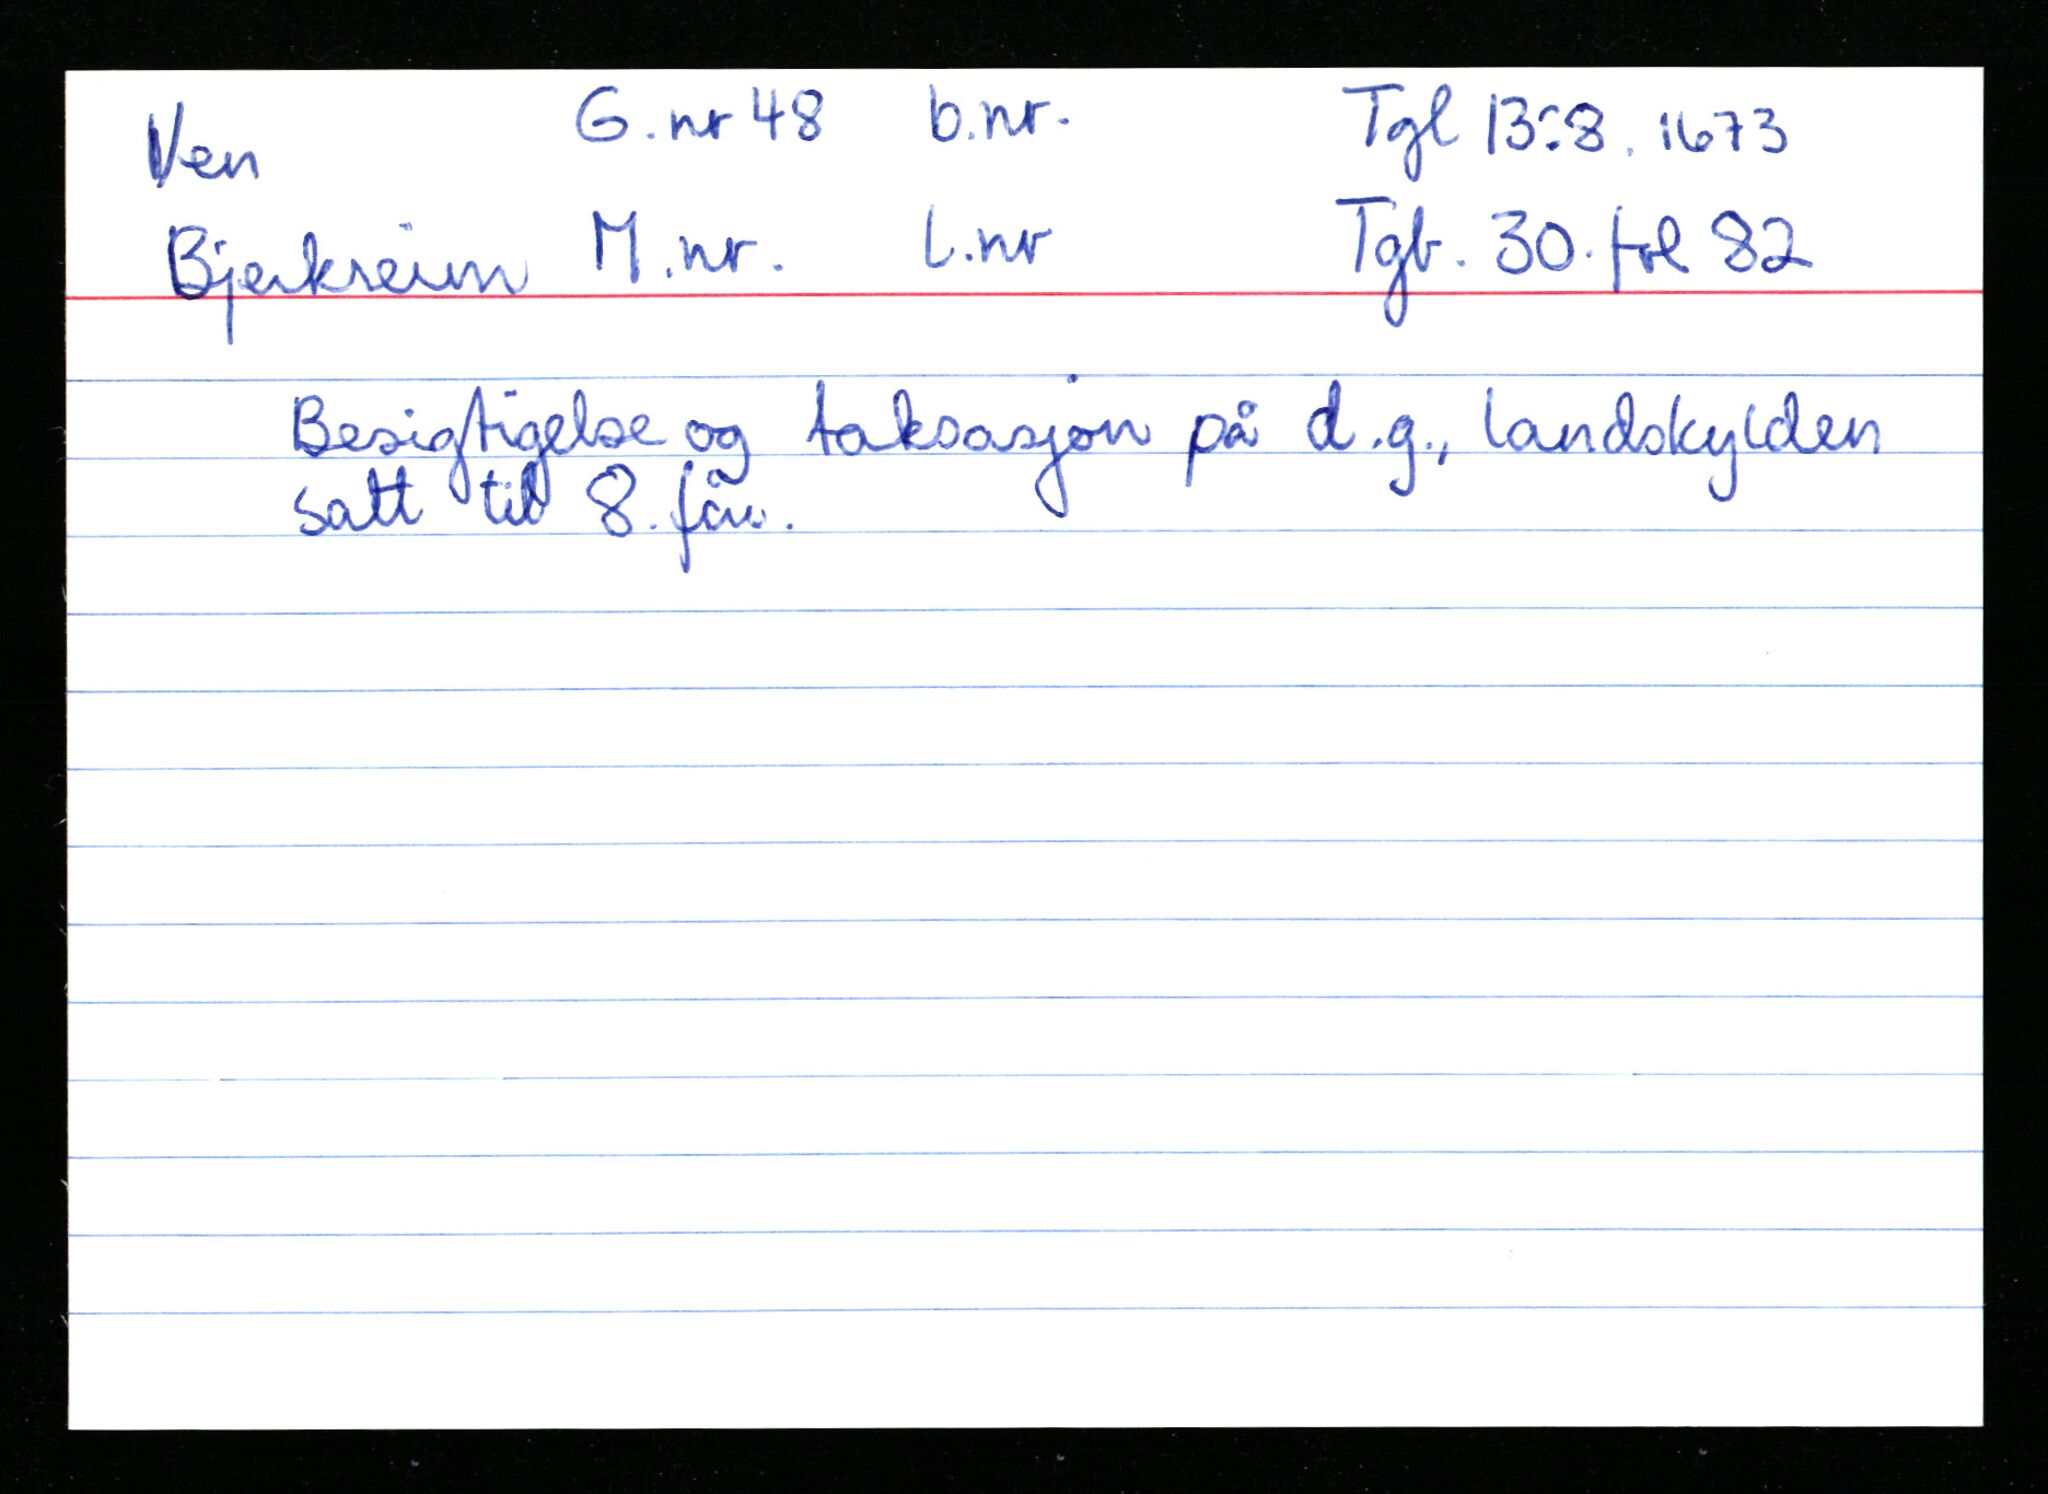 Ven G.nr 48 b.nr. Tgl 13.8.1673
Bjerkreim M.nr. l.nr Tgb. 30. fol 82
Besigtigelse og taksasjon på d.g., landskylden
satt til 8.